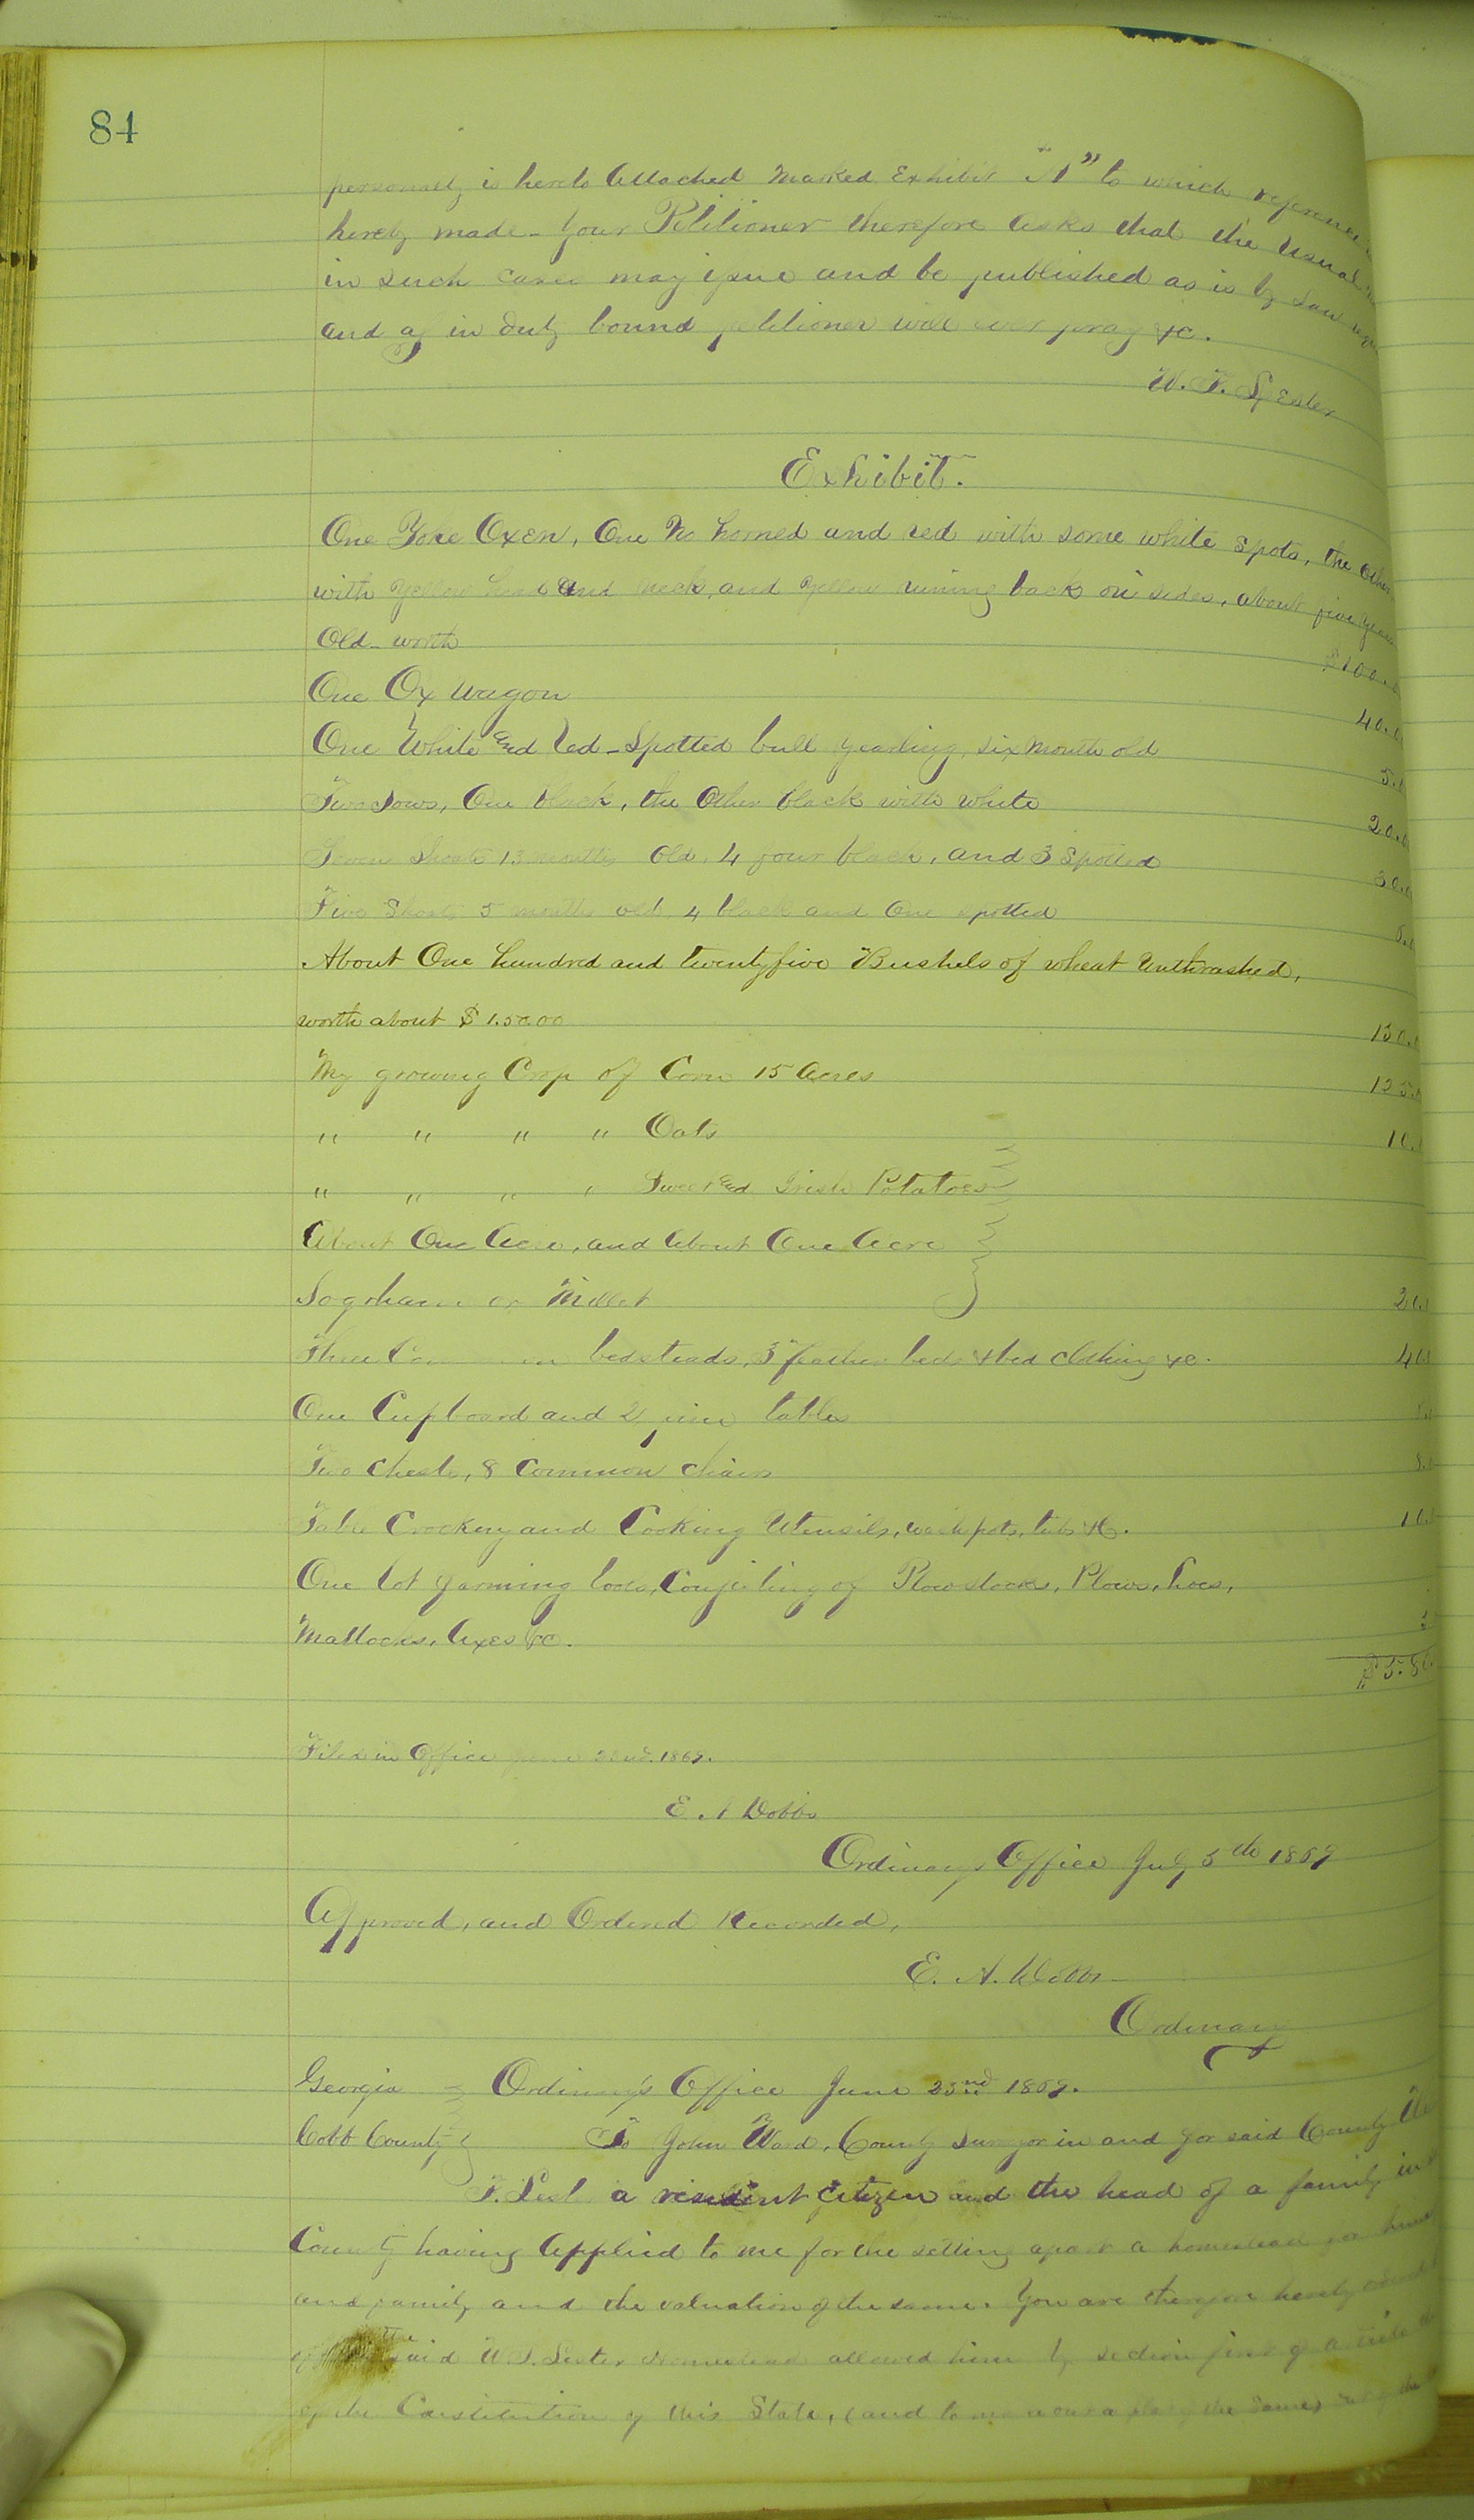 84
personalty is hereto attached marked Exhibit "A" to which reference
hereby made - Your Petitioner therefore asks that the usual
in such cases may issue and be published as is by Law
and as in duty bound petitioner will ever pray &c.
W. T.
Exhibit.
One Yoke Oxen, One No horned and red with some white spots, the other
with yellow head and neck, and yellow runing back on sides, about five years
Old - worth $100.
One Ox wagon 40.
One White and red - Spotted bull yearling, six month old 5.
Two Sows, One black, the Other black with white 20.
Seven Shoats 13 months Old, 4 four black, and 3 Spotted 30.
Five Shoats 5 months old, 4 black and One spotted
About One hundred and twenty five Bushels of wheat Unthrashed,
worth about $ 1.50.00 150.
My growing Crop of Corn 15 Acres 125.
" " " " Oats 10.
" " " " Sweet and Irish Potatoes
About One Acre, and About One Acre
or Millet 20.
Three Common bedsteads, 3 feather beds & bed clothing &c. 40
One Cupboard and 2 pine tables
Two Chests, 8 Common chairs 8.
Table Crockery and Cooking Utensils, wash pots, tubs &c. 10.
One lot farming tools, Consisting of Plowstocks, Plows, hoes,
Mattocks, Axes &c.
$ 58
Filed in Office June 22nd. 1869.
E. A Dobbs
Ordinary's Office July 5th 1869
Approved, and Ordered Recorded,
E. A. Dobbs
Ordinary
Georgia Ordinary's Office June 23nd 1869.
Cobb County To John Ward, County Surveyor in and for said County
a resident Citizen and the head of a family in
County having Applied to me for the setting apart a homestead for himself
and family and the valuation of the same. You are therefore hereby
the said W. T. Homestead allowed him by section first of article
of the Constitution of this State, (and to make out a plat of the same)